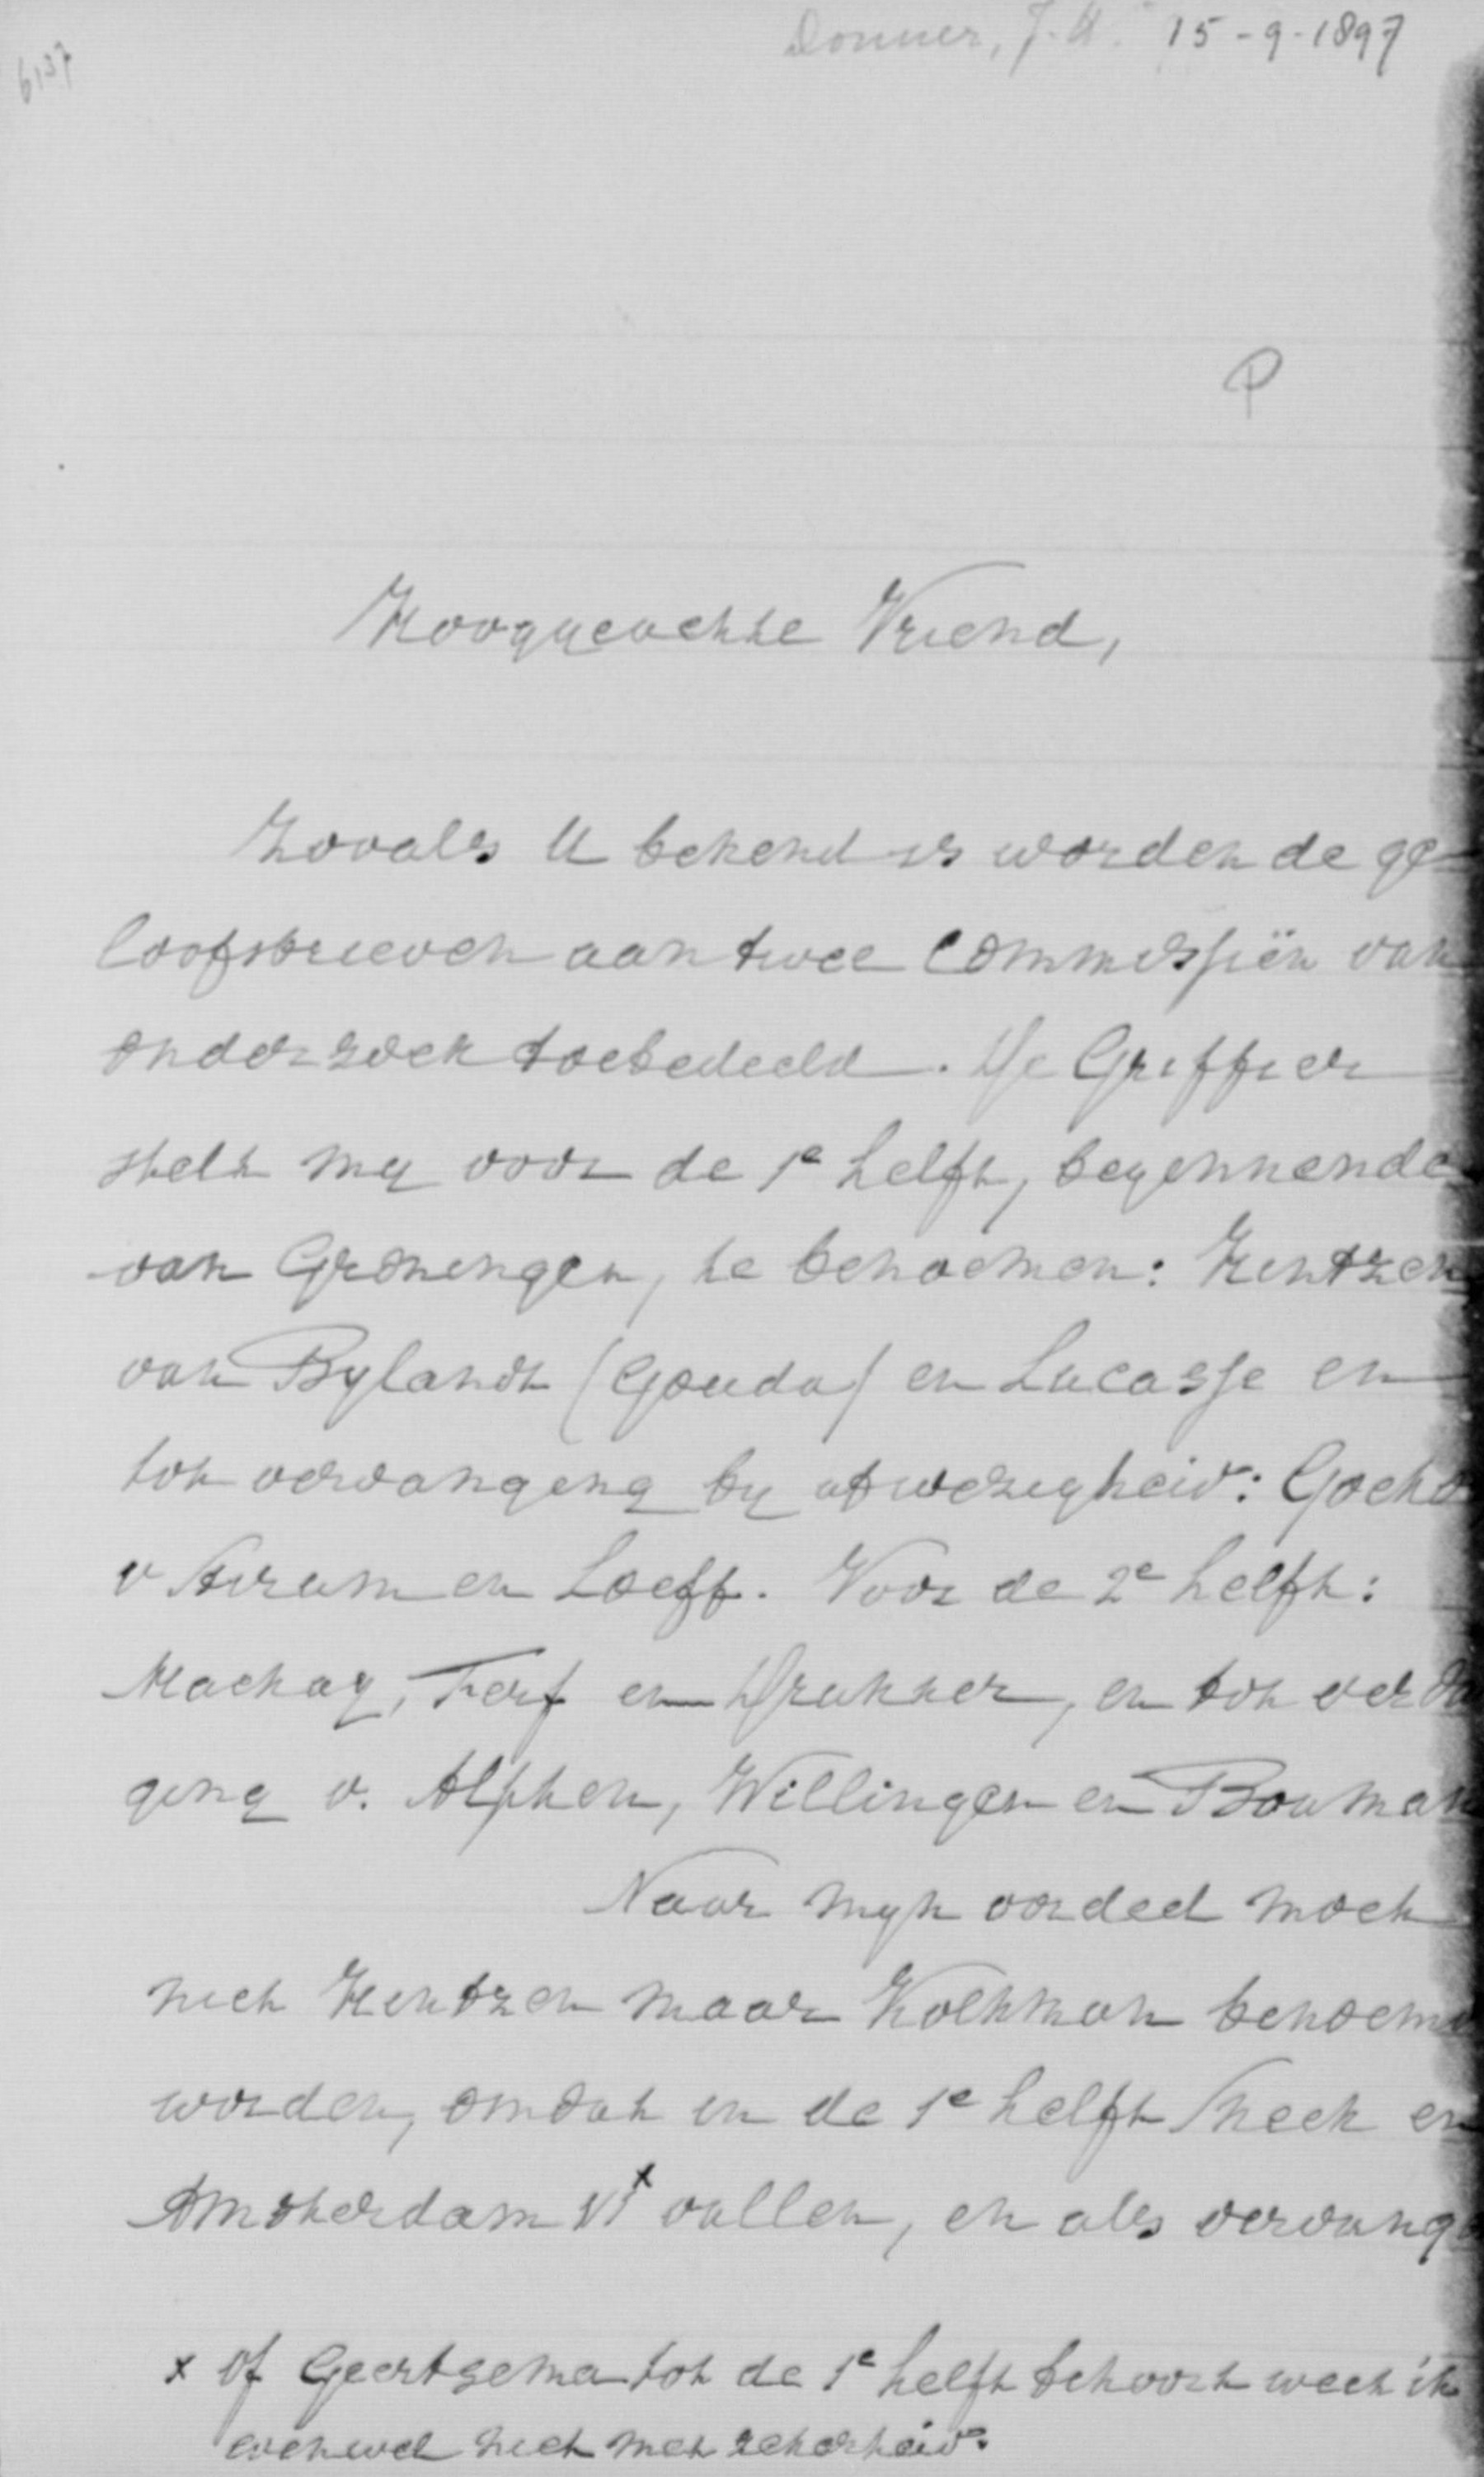 Donner, J.H. 15-9-1897
6137
P
Hooggeachte Vriend,
Zooals U bekend is worden de ge-
loofsbrieven aan twee Commissiën van
onderzoek toebedeeld. De Griffier
stelt my voor de 1e helft, beginnende
van Groningen, te benoemen: Hintzen
van Bylandt (Gouda) en Lucasse en
tot vervanging by afwezigheid:
v Styrum en Loeff. Voor de 2e helft:
Mackay, Ferf en Drukker, en tot
ging v. Alphen, Willinge en Bouman
Naar myn oordeel moet
niet Hintzen maar Kolkman benoemd
worden, omdat in de 1e helft Sneek en
Amsterdam VIx vallen, en als
x of Geertsema tot de 1e helft behoort weet ik
evenwel niet met zekerheid.